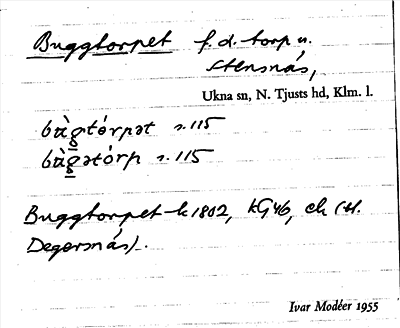 Buggtorpet f.d. torp u.
Stensnäs,
Ukna sn, N. Tjusts hd, Klm. l.
bùg̲tórpət s. 115
bùg̲ətórp s. 115
Buggtorpet k 1802, kG46, ek (tl.
Degersnäs).
Ivar Modéer 1955